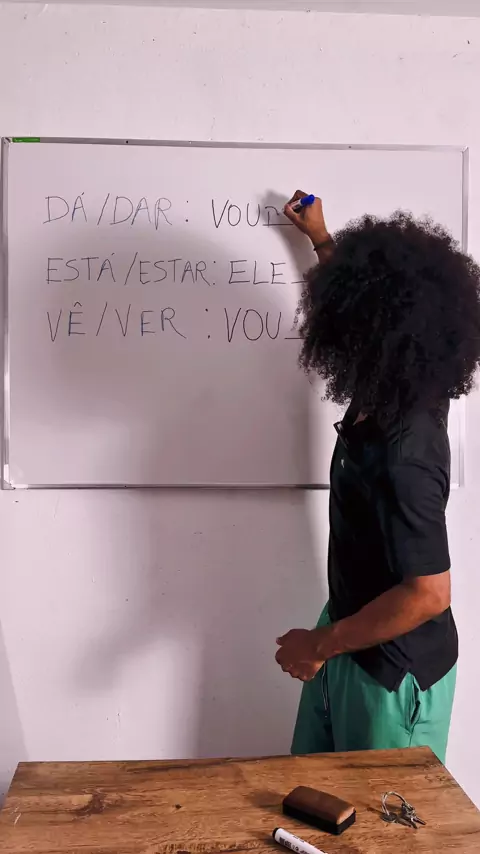 DÁ/DAR: VOU
ESTÁ/ESTAR: ELE
VÊ/VER: VOU